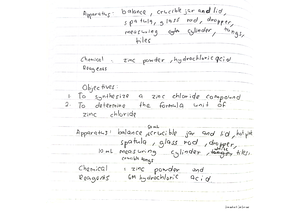 Apparatus : balance, crucible jar and lid,
spatula, glass rod, dropper,
measuring cylinder, tongs,
tiles
Chemical : zinc powder, hydrochloric acid
Reagents
Objectives :
1. To synthesize a zinc chloride compound
2. To determine the formula unit of
zinc chloride
Apparatus : balance, crucible jar and lid, hot plate
spatula, glass rod, dropper,
10 mL measuring cylinder, tiles,
crucible tongs
Chemical : zinc powder and
Reagents 6M hydrochloric acid